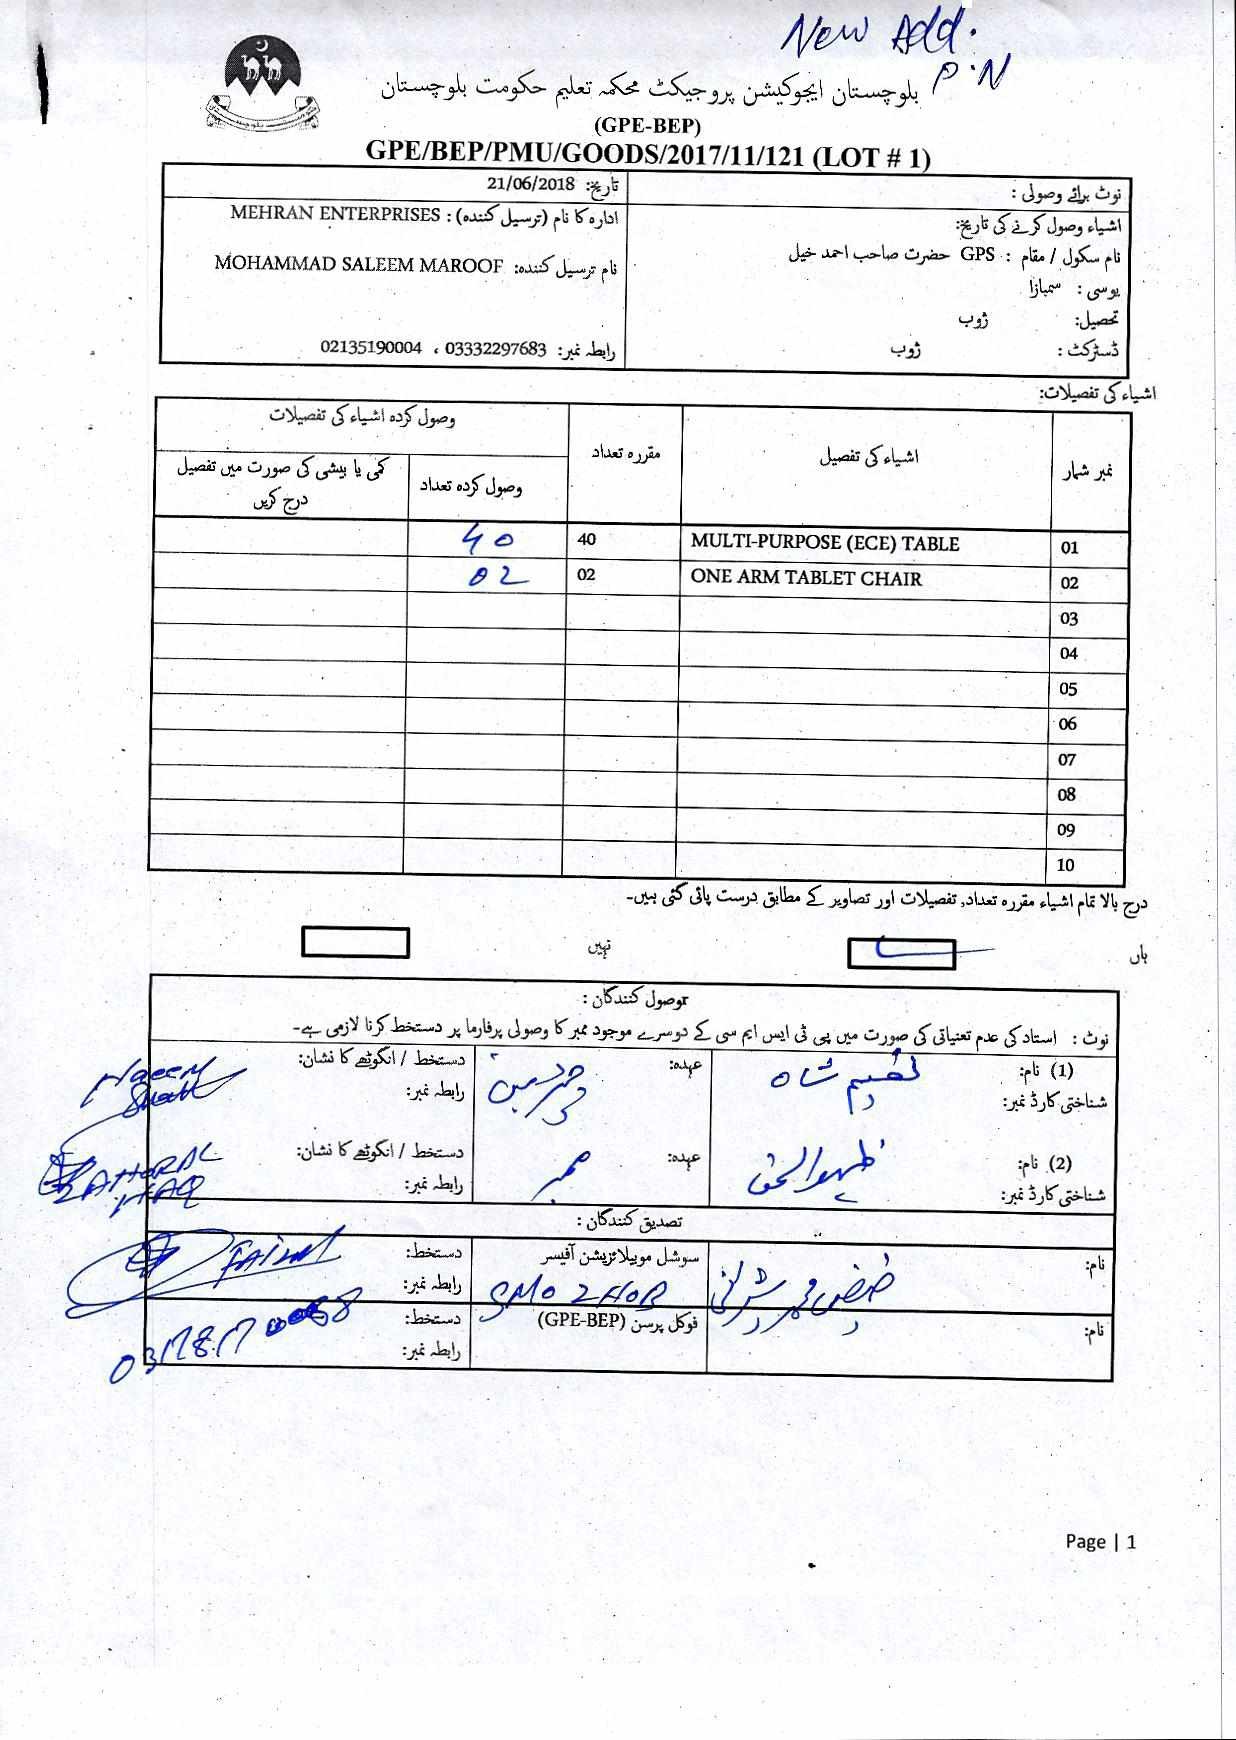 New Add.
P.N
بلوچستان ایجوکیشن پروجیکٹ محکمہ تعلیم حکومت بلوچستان
(GPE-BEP)
GPE/BEP/PMU/GOODS/2017/11/121 (LOT # 1)
نوٹ برائے وصولی :
تاریخ: 21/06/2018
اشیاء وصول کرنے کی تاریخ:
ادارہ کا نام (ترسیل کنندہ) : MEHRAN ENTERPRISES
نام سکول / مقام : GPS حضرت صاحب احمد خیل
نام ترسیل کنندہ: MOHAMMAD SALEEM MAROOF
یوسی : سمبازا
تحصیل: ژوب
ڈسٹرکٹ : ژوب
رابطہ نمبر: 03332297683 ، 02135190004
اشیاء کی تفصیلات:
نمبر شمار اشیاء کی تفصیل مقررہ تعداد وصول کردہ اشیاء کی تفصیلات
وصول کردہ تعداد کمی یا بیشی کی صورت میں تفصیل درج کریں
01 MULTI-PURPOSE (ECE) TABLE 40 40
02 ONE ARM TABLET CHAIR 02 02
03
04
05
06
07
08
09
10
درج بالا تمام اشیاء مقررہ تعداد, تفصیلات اور تصاویر کے مطابق درست پائی گئی ہیں۔
ہاں نہیں
وصول کنندگان :
نوٹ : استاد کی عدم تعنیاتی کی صورت میں پی ٹی ایس ایم سی کے دوسرے موجود ممبر کا وصولی پرفارما پر دستخط کرنا لازمی ہے۔
(1) نام: نعیم شاہ عہدہ: دستخط / انگوٹھے کا نشان: Naeem Shah
شناختی کارڈ نمبر: رابطہ نمبر:
(2) نام: ظہور الحق عہدہ: ممبر دستخط / انگوٹھے کا نشان: ZAHORAL HAQ
شناختی کارڈ نمبر: رابطہ نمبر:
تصدیق کنندگان :
نام: سوشل موبیلائزیشن آفیسر SMO ZHOB دستخط:
رابطہ نمبر:
نام: فوکل پرسن (GPE-BEP) دستخط:
رابطہ نمبر:
Page | 1